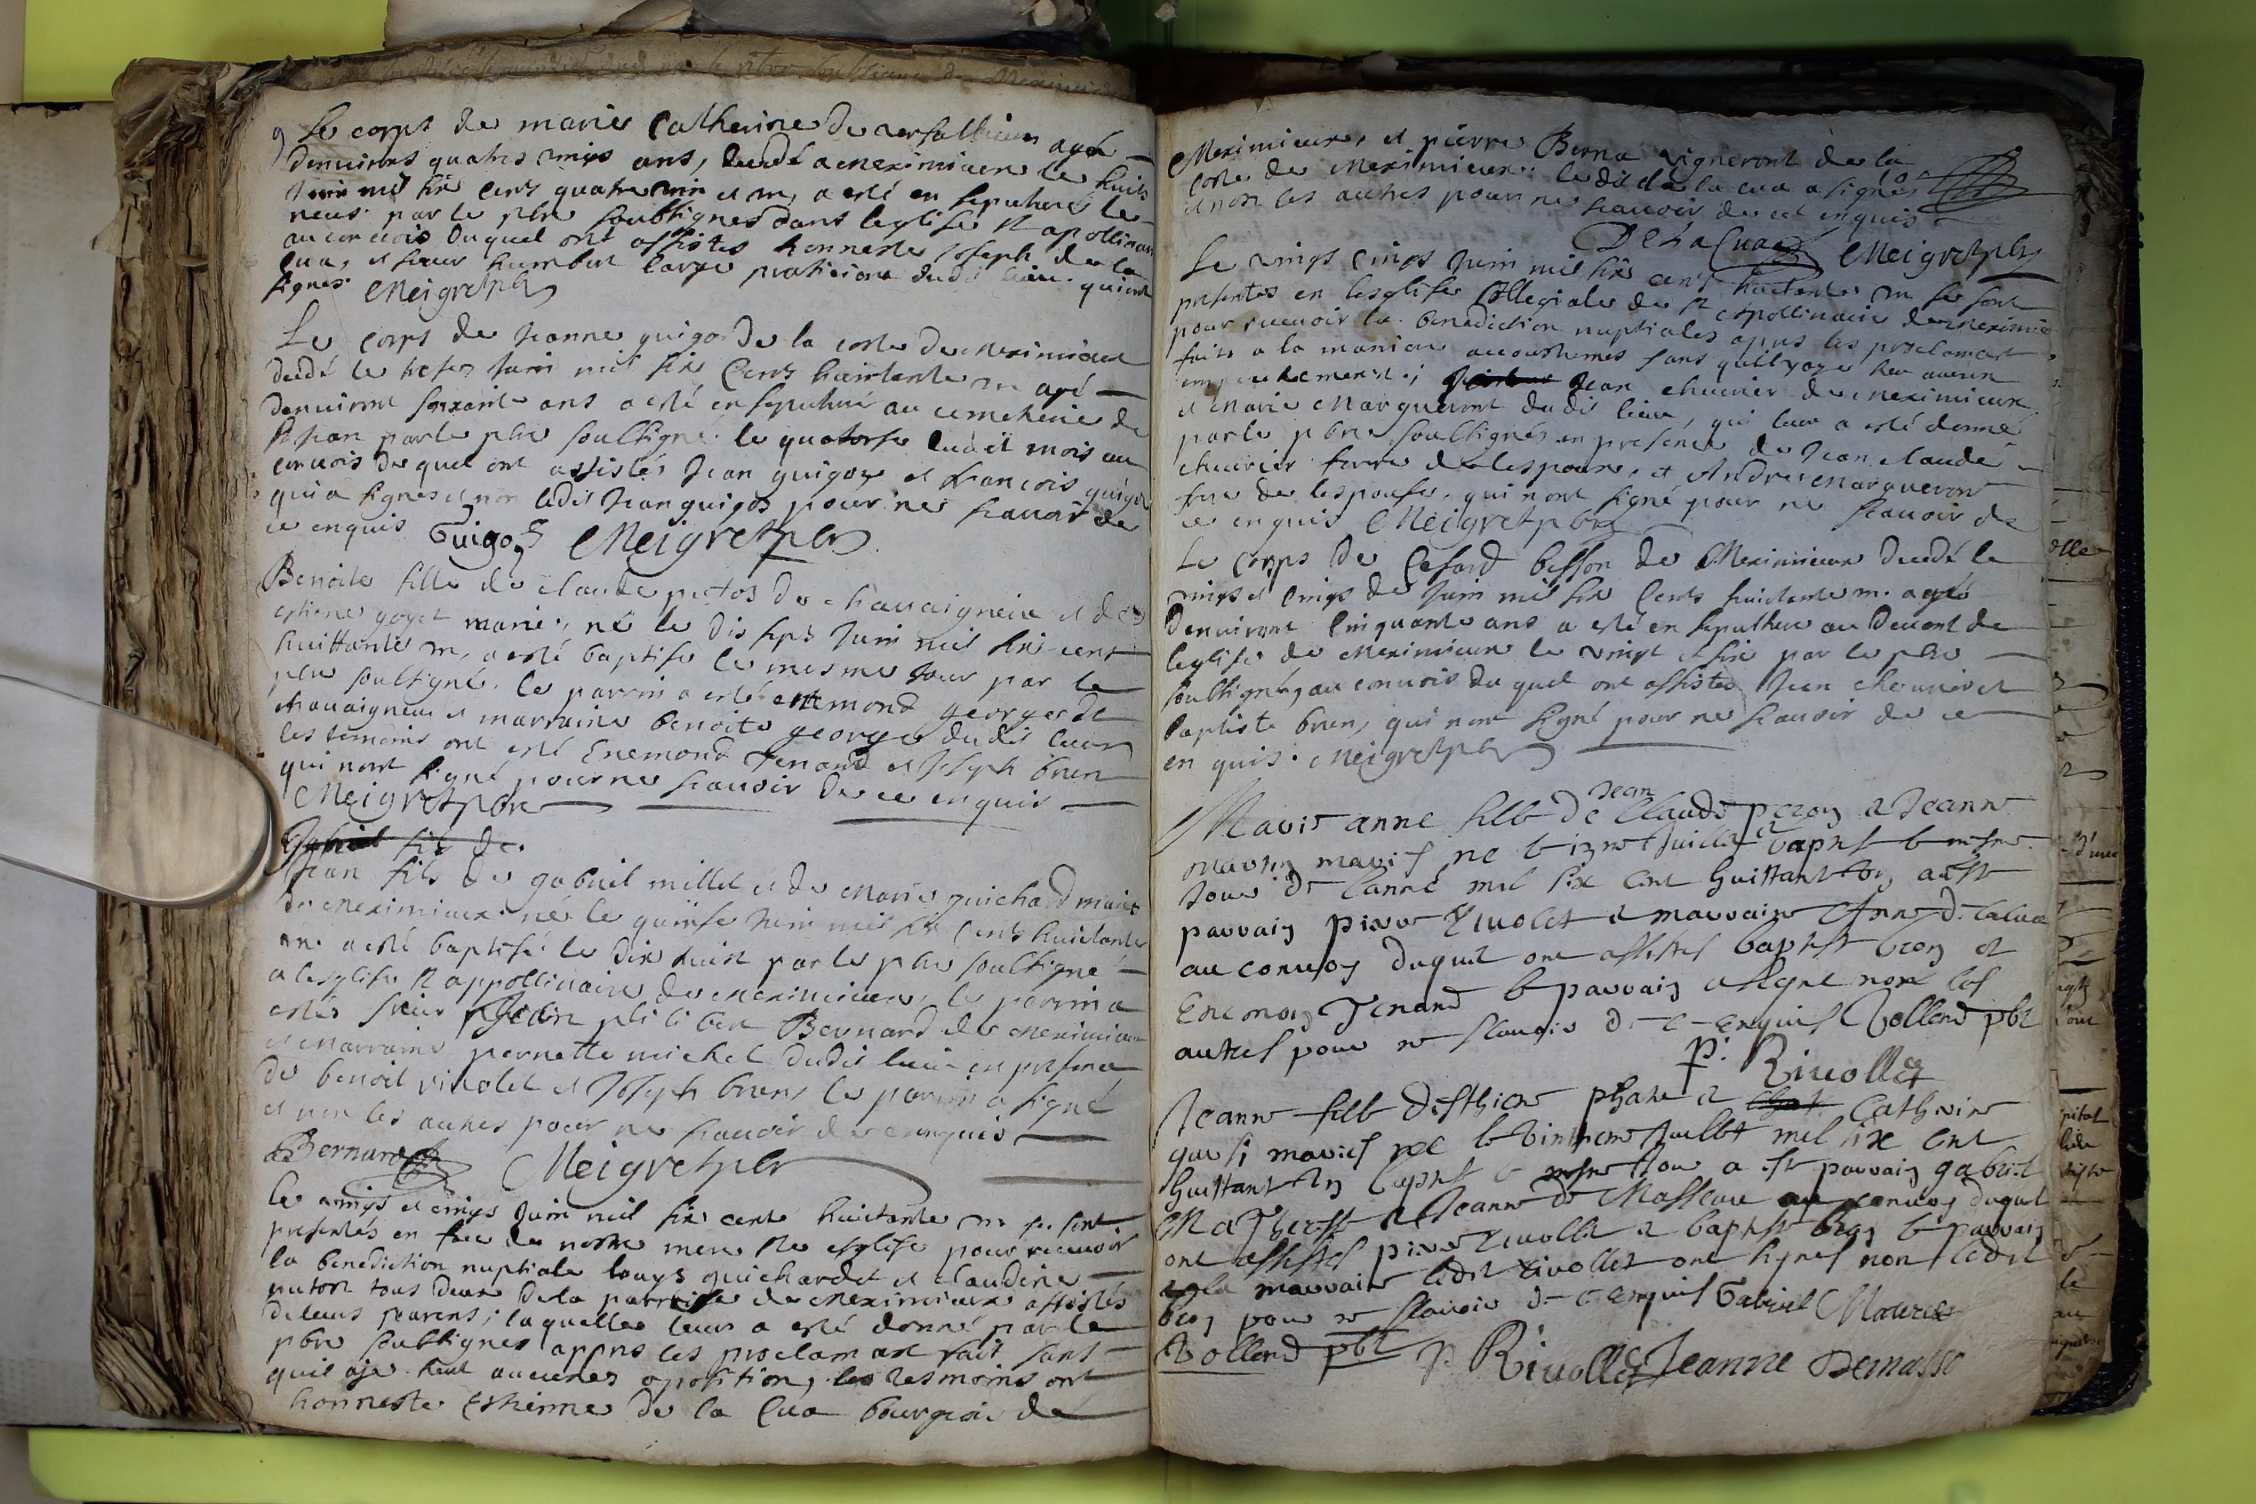 Le corps de marie Catherine de versallieux agée
denuirons quatres vings ans, decedé a meximieux le huits
Juin mil six cents quatre vin et un, a esté en sepulturé le
neus. par le pbre soubsignes dans leglise St apollinair
au conuois duquel ont assistes honneste Joseph de la
Cua, et sieur humbert Carge praticiens dudit lieu. qui ont
signes. Meigret pbr
Le corps de Jeanne guigo de la coste de meximieux
decedé le trese Juin mil six Cents huictante un agé
denuiront soixante ans a esté ensepulturé au cemetiere de
St Jean par le pbre soubsigné le quatorse dudit mois au
conuois duquel ont assistés Jean guigoz et francois guigoz
qui a signes et non ledit Jean guigoz pour ne scauoir de
ce enquis Guigoz Meigret pbr
Benoite fille de claude pectos de chauaigneiu et de
estiene goyet maries, né le dis sept Juin mil six cent
huittante un, a esté baptisé le mesme Jour par le
pbre soubsigné. le parrin a esté enemond george de
chauaigneiu et marraine benoite george dudit lieux
les temoins ont esté Enemond Tenand et Joseph brun
qui nont signé pour ne scauoir de ce enquis
Meigret pbre
Gabriel fils de
Jean fils de gabriel millet et de Marie guichard mariés
de meximieux. né le quinse Juin mil six Cents huictante
un. a esté baptisé le dix huit par le pbre soubsigné
a lesglise St appollinaire de meximieux, le parrin a
estés sieur Jean philibert Bernard de meximieux
et marraine pernette michel dudit lieu en presence
de benoit riuolet et Joseph brun, le parrin a signé
et non les autres pour ne scauoir de ce enquis
Bernard Meigret pbr
Le vings et cinqs Juin mil six cents huictante un se sont
presentés en face de nostre mere Ste esglise pour receuoir
la benediction nuptiale louys guichardet et claudine
tous deux de la parroisse de meximieux assistés
de leurs parens; laquelle leur a esté donné par le
pbre soubsignes apprés les proclamaon fait sans
quil aje heut aucunes oposition, les tesmoins ont
honneste Estienne de la Cua bourgeois de
Meximieux, et pierre Berna vigneront de la
coste de meximieux; ledit de la cua a signés
et non les autres pour ne scauoir de ce enquis
De La Cua Meigret pbr
Le vings cinqs Juin mil six cens huictante un se sont
presentés en lesglise Collegiale de St Apollinaire de meximie
pour receuoir la benediction nuptiales apres les proclamaon
faits a la maniere accoustumes sans quil y aye heu aucun
empechement; Jean cheurier de meximieux
et Marie Margueront dudit lieu, qui leur a esté donné
par le pbre soubsignés en presence de Jean claude
cheurier frere de lespoux, et André margueron
frere de lespouse, qui nont signé pour ne scauoir de
ce enquis Meigret pbr
Le corps de Cesard besson de Meximieux decedé le
vings et cinqs de Juin mil six Cents huictante un. agé
denuiront Cinquante ans a esté en sepulture au deuant de
leglise de meximieux le vingt et six par le pbre
soubsignés, au conuois du quel ont assistés Jean cheurier et
baptiste brun, qui nont signé pour ne scauoir de ce
en quis. Meigret pbr
Jean
Marie anne fille de Claude pezon & Jeanne
maries ne le Juillet bapt le mesme
Jour de lanné mil six cent huittant un a este
parrain pierre Riuolet & marraine Anne de lacua
au conuoy duquel ont assistes baptist bron et
Enemon Tenand le parrain a signe non les
autres pour ne scauoir de ce enquis Vollerd pbr
P. Riuollet
Jeanne fille desthiene & Catherine
maries ne le Juillet mil six cent
huittant un bapt le mesme Jour a est parrain gabriel
& Jeanne de Masseau au conuoy duquel
ont assistes pierre riuollet & baptist bron le parrain
& la marraine ledit riuollet ont signes non ledit
bron pour ne scauoir de ce enquis Gabriel
Vollerd pbr P. Riuollet Jeanne Demasso